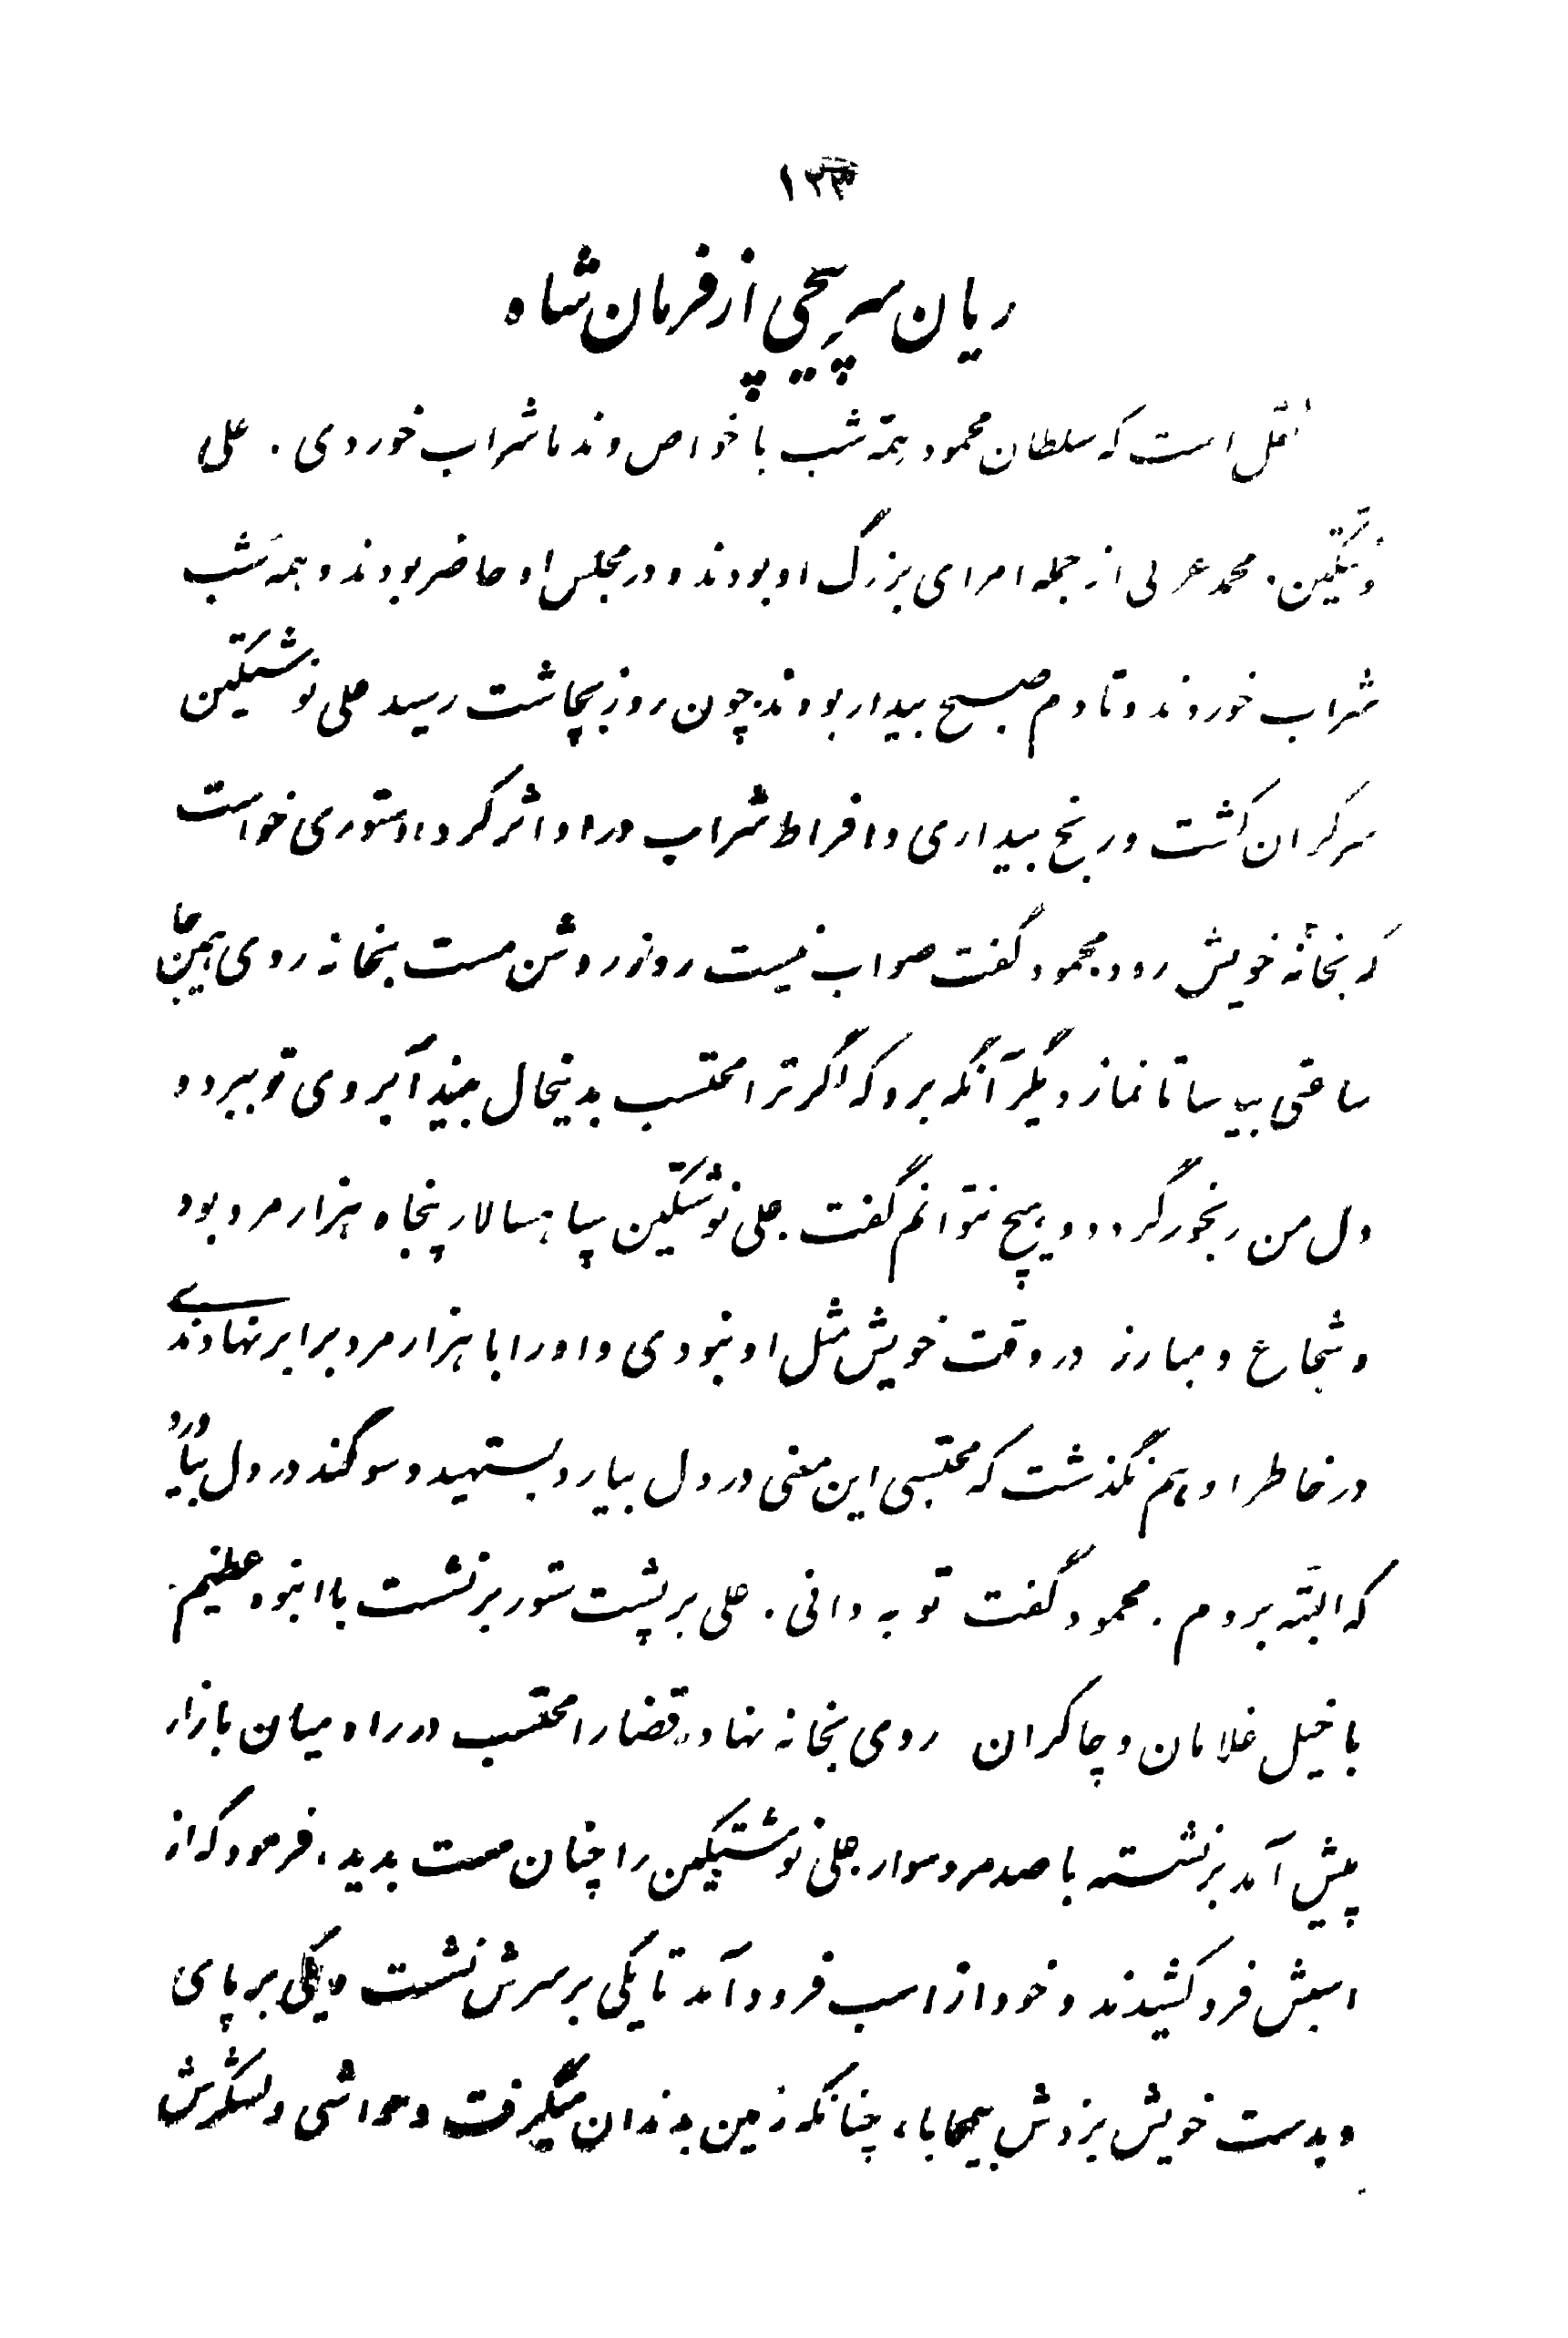 ۱۳۳
زیان سرپیچی از فرمان شاه
نقل است که سلطان محمود همه شب با خواص و ندما شراب خوردی . علی
نوشتگین . محمد عربی از جمله امرای بزرگ او بودند و در مجلس او حاضر بودند و همه شب
شراب خوردند و تا دم صبح بیدار بودند. چون روز بچاشت رسید علی نوشتگین
سرگران گشت و رنج بیداری و افراط شراب در او اثر کرد و دستوری خواست
که بخانه خویش رود. محمود گفت صواب نیست روز روشن مست بخانه روی همین جا
ساعتی بیاسا تا نماز دیگر آنگه برو که اگر ترا محتسب بدینحال بیند آبروی تو ببرد و
دل من رنجور گردد و هیچ نتوانم گفت . علی نوشتگین سپاهسالار پنجاه هزار مرد بود
و شجاع و مبارز در وقت خویش مثل او نبودی و او را با هزار مرد برابر نهادندی
در خاطر او هم نگذشت که محتسبی این معنی در دل بیارد بستهید و سوگند در دل بیاورد
که البته بروم . محمود گفت تو به دانی . علی بر پشت ستور برنشست با انبوه عظیم
با خیل غلامان و چاکران روی بخانه نهاد. قضا را محتسب در راه میان بازار
پیش آمد برنشسته با صد مرد سوار. علی نوشتگین را چنان مست بدید، فرمود که از
اسبش فرو کشیدند و خود از اسب فرود آمد تا یکی بر سرش نشست و یکی بر پای
و بدست خویش بزدش بیمحابا، چنانکه زمین بدندان میگرفت و حواشی و لشکرش